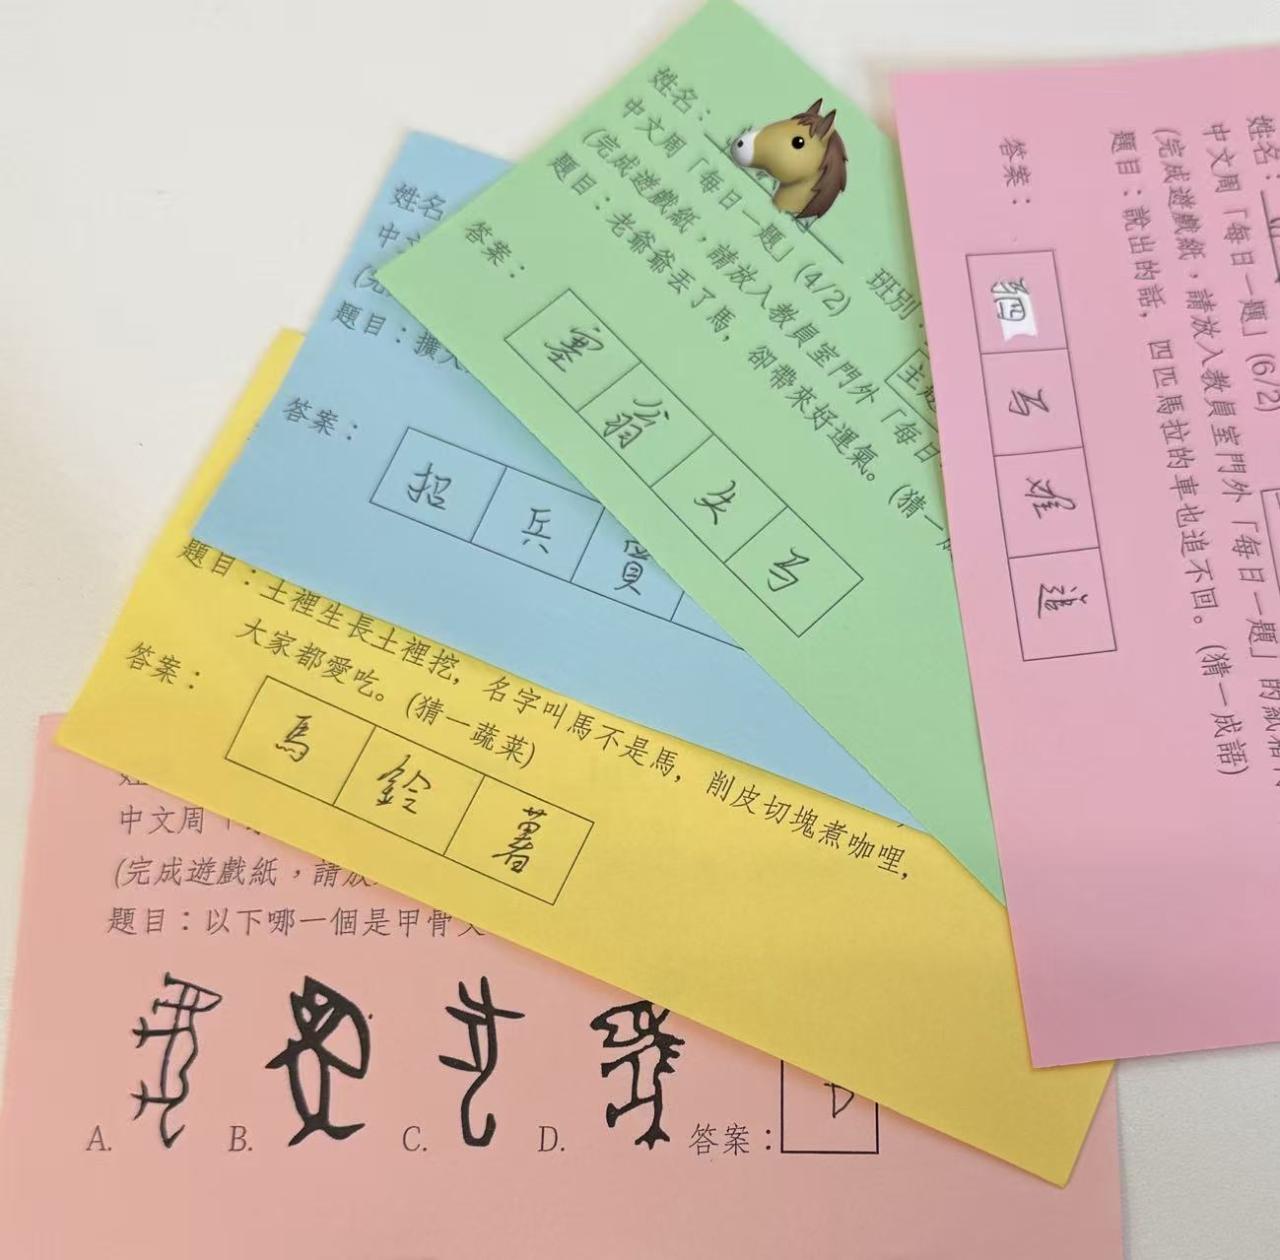 姓名：
中文周「每日一題」(4/2)
班別：
(完成遊戲紙，請放入教員室門外「每日
主題
題目：老爺爺丟了馬，卻帶來好運氣。(猜一
答案：
塞翁失马
姓名：
中文周「每日一題」(6/2)
(完成遊戲紙，請放入教員室門外「每日一題」的紙箱
題目：說出的話，四匹馬拉的車也追不回。(猜一成語)
答案：
驷马难追
姓名
中文
(完
題目：擴大
答案：
招兵買
題目：土裡生長土裡挖，名字叫馬不是馬，削皮切塊煮咖哩，
大家都愛吃。(猜一蔬菜)
答案：
馬鈴薯
中文周「
(完成遊戲紙，請放
題目：以下哪一個是甲骨文
A. B. C. D. 答案：D